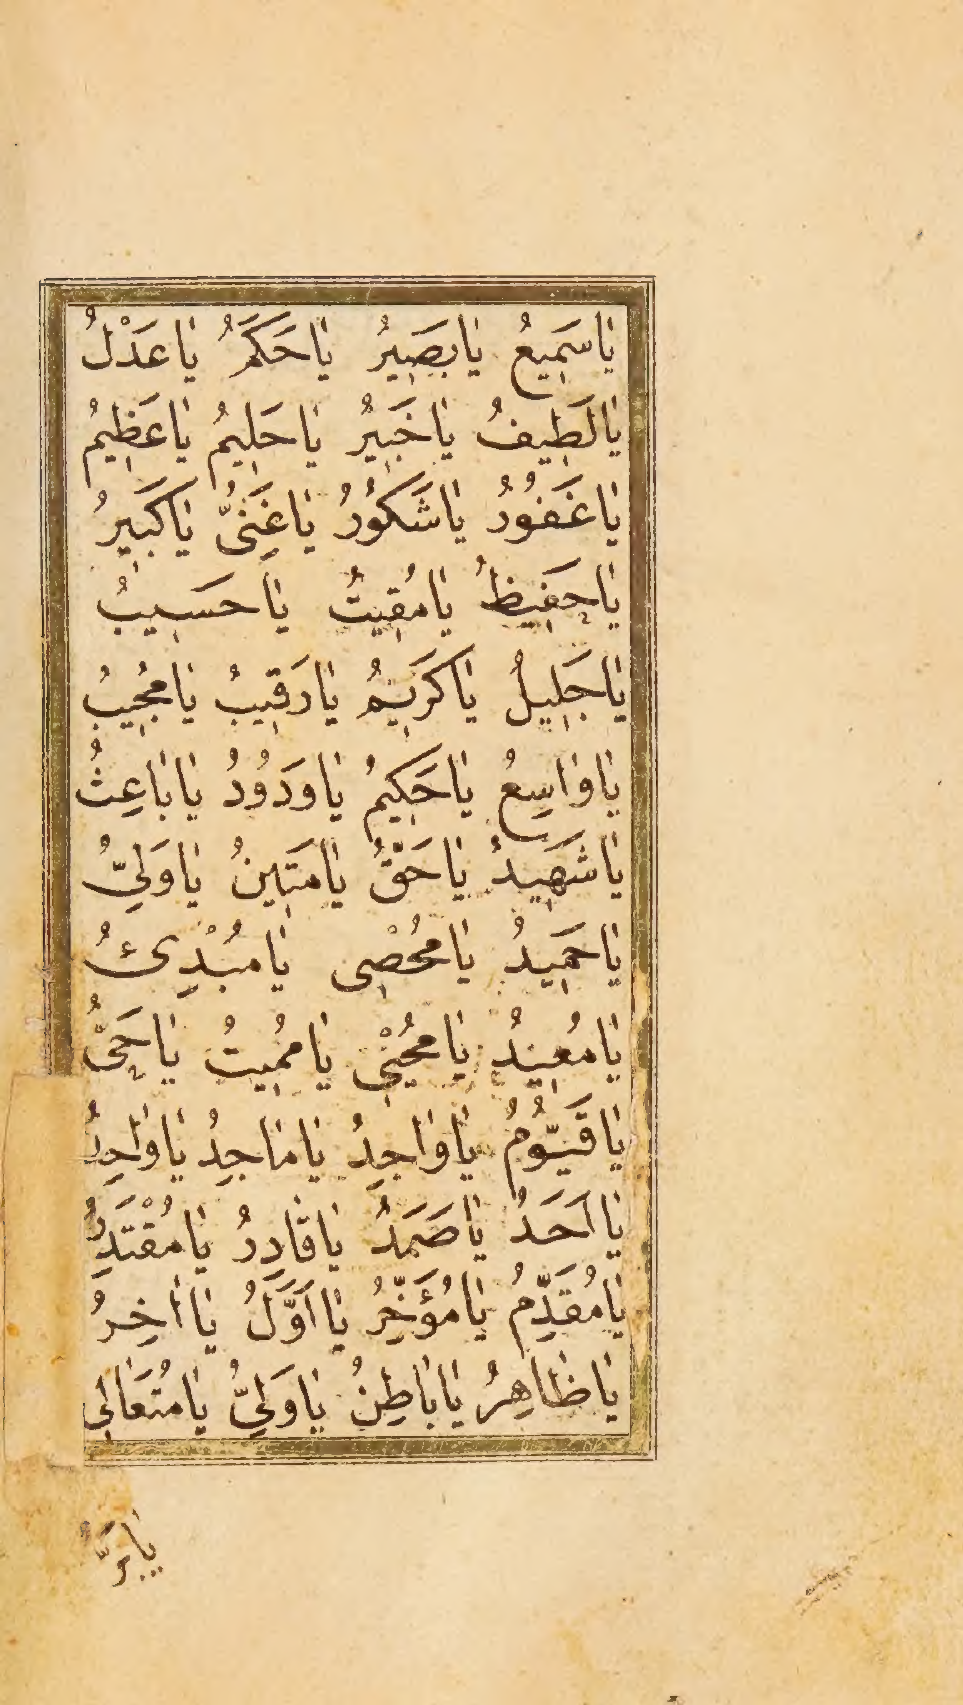 يَا سَمِيعُ يَا بَصِيرُ يَا حَكَمُ يَا عَدْلُ
يَا لَطِيفُ يَا خَبِيرُ يَا حَلِيمُ يَا عَظِيمُ
يَا غَفُورُ يَا شَكُورُ يَا غَنِىُّ يَا كَبِيرُ
يَا حَفِيظُ يَا مُقِيتُ يَا حَسِيبُ
يَا جَلِيلُ يَا كَرِيمُ يَا رَقِيبُ يَا مُجِيبُ
يَا وَاسِعُ يَا حَكِيمُ يَا وَدُودُ يَا بَاعِثُ
يَا شَهِيدُ يَا حَقُّ يَا مَتِينُ يَا وَلِيُّ
يَا حَمِيدُ يَا مُحْصِى يَا مُبْدِئُ
يَا مُعِيدُ يَا مُحْيِى يَا مُمِيتُ يَا حَىُّ
يَا قَيُّومُ يَا وَاجِدُ يَا مَاجِدُ يَا وَاحِدُ
يَا اَحَدُ يَا صَمَدُ يَا قَادِرُ يَا مُقْتَدِرُ
يَا مُقَدِّمُ يَا مُؤَخِّرُ يَا اَوَّلُ يَا اٰخِرُ
يَا ظَاهِرُ يَا بَاطِنُ يَا وَلِيُّ يَا مُتَعَالِى
يَا بَرُّ